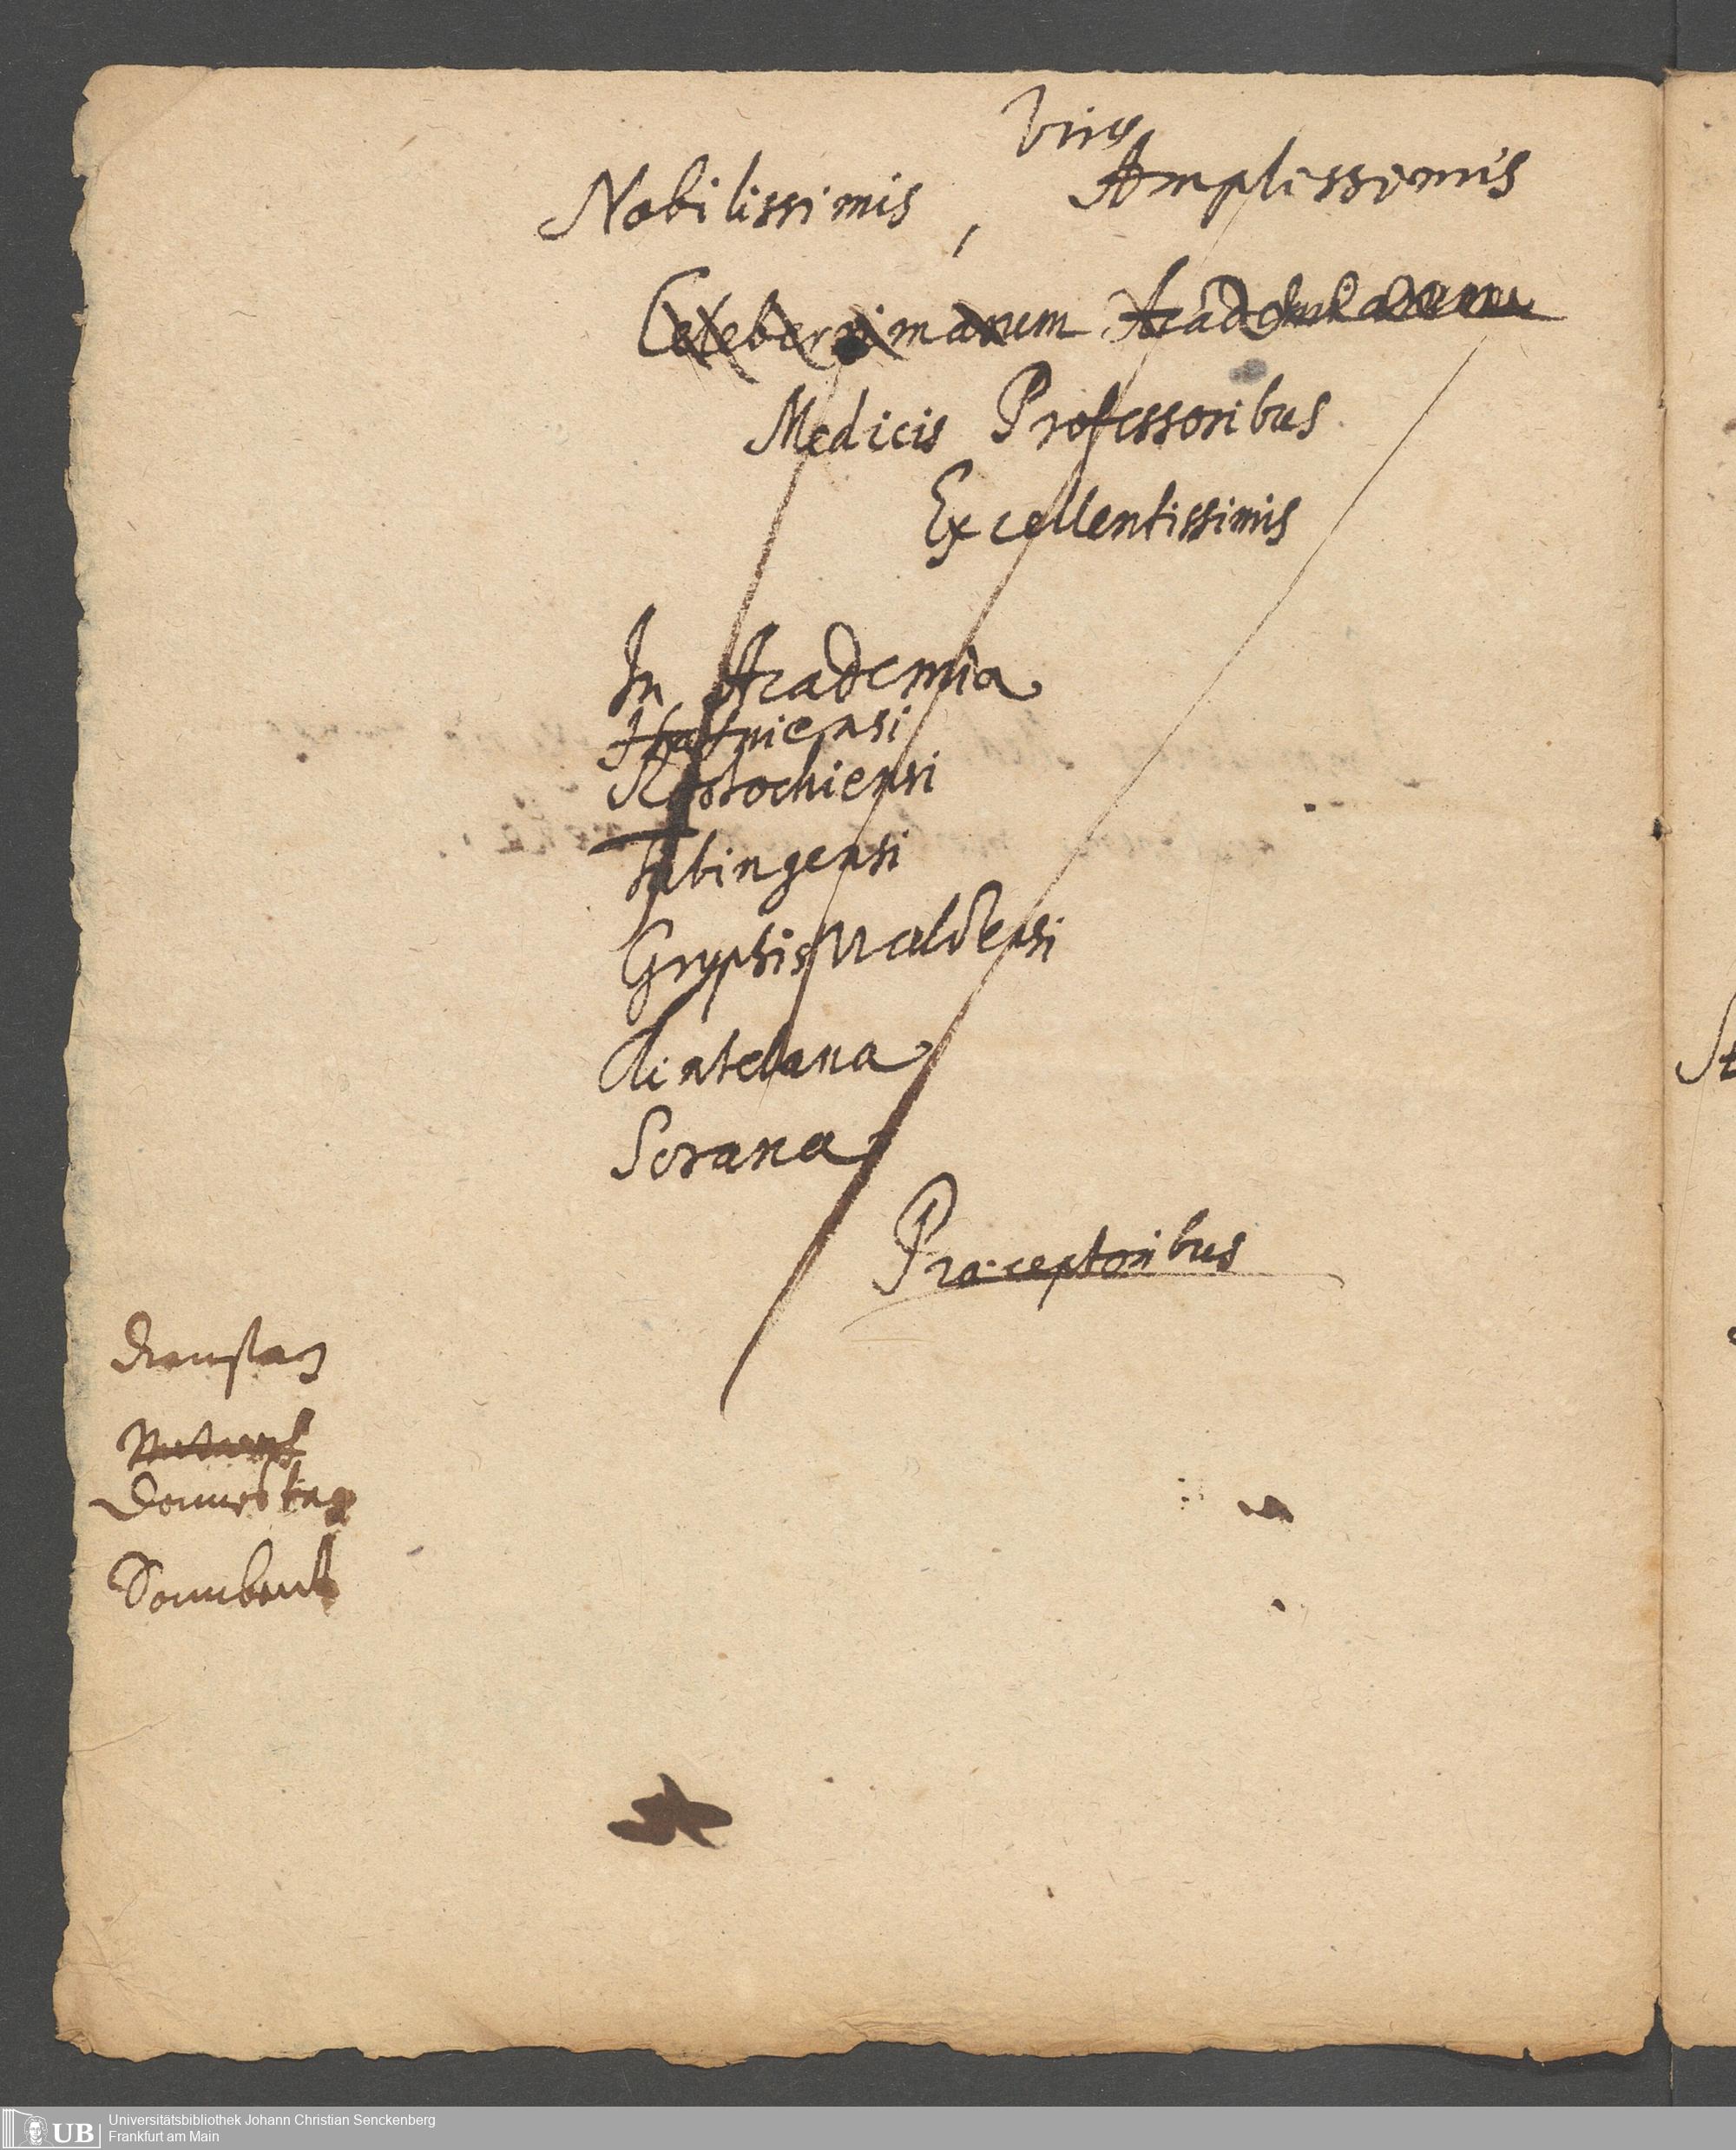 Viris
Nobilissimis, Amplissimis
Celeberrimarum Academiarum
Medicis Professoribus
Excellentissimis
In Academia
Hafniensi
Rostochiensi
Tubingensi
Gryphiswaldensi
Rintelana
Sorana
Præceptoribus
Dienstag
Mitwoch
Donnerstag
Sonnabent
St
UB Universitätsbibliothek Johann Christian Senckenberg
Frankfurt am Main